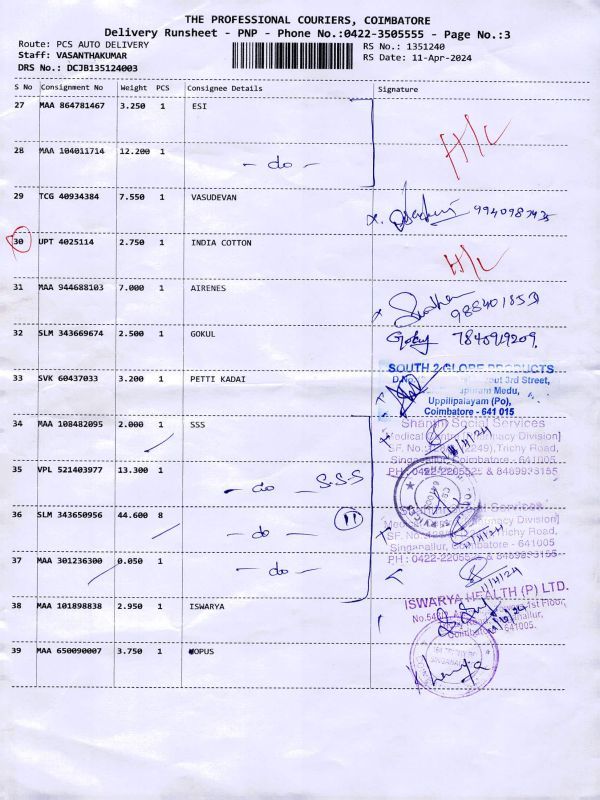 THE PROFESSIONAL COURIERS, COIMBATORE
Delivery Runsheet - PNP - Phone No.:0422-3505555 - Page No.:3
Route: PCS AUTO DELIVERY
RS No.: 1351240
Staff: VASANTHAKUMAR
RS Date: 11-Apr-2024
DRS No.: DCJB135124003
S No Consignment No Weight PCS Consignee Details Signature
27 MAA 864781467 3.250 1 ESI
H/L
28 MAA 104011714 12.200 1 - do -
29 TCG 40934384 7.550 1 VASUDEVAN
30 UPT 4025114 2.750 1 INDIA COTTON H/L
31 MAA 944688103 7.000 1 AIRENES
32 SLM 343669674 2.500 1 GOKUL Gokul 7840919209
SOUTH 2 GLOBE PRODUCTS
33 SVK 60437033 3.200 1 PETTI KADAI
3rd Street,
Medu,
Uppilipalayam (Po),
Coimbatore - 641 015
34 MAA 108482095 2.000 1 SSS
Shanthi Social Services
[Medical Pharmacy Division]
SF. No. Trichy Road,
Singanallur, Coimbatore - 641005
PH : 0422-2205525 & 8489933155
35 VPL 521403977 13.300 1 - do - S.S.S
36 SLM 343650956 44.600 8 - do - 11
Services
Pharmacy Division]
SF. No. Trichy Road,
Singanallur, Coimbatore - 641005
PH : 0422-2205525 & 8489933155
37 MAA 301236300 0.050 1 - do -
11/4/24
38 MAA 101898838 2.950 1 ISWARYA
ISWARYA HEALTH (P) LTD.
1st Floor,
Road,
Coimbatore - 641005.
39 MAA 650090007 3.750 1 OPUS